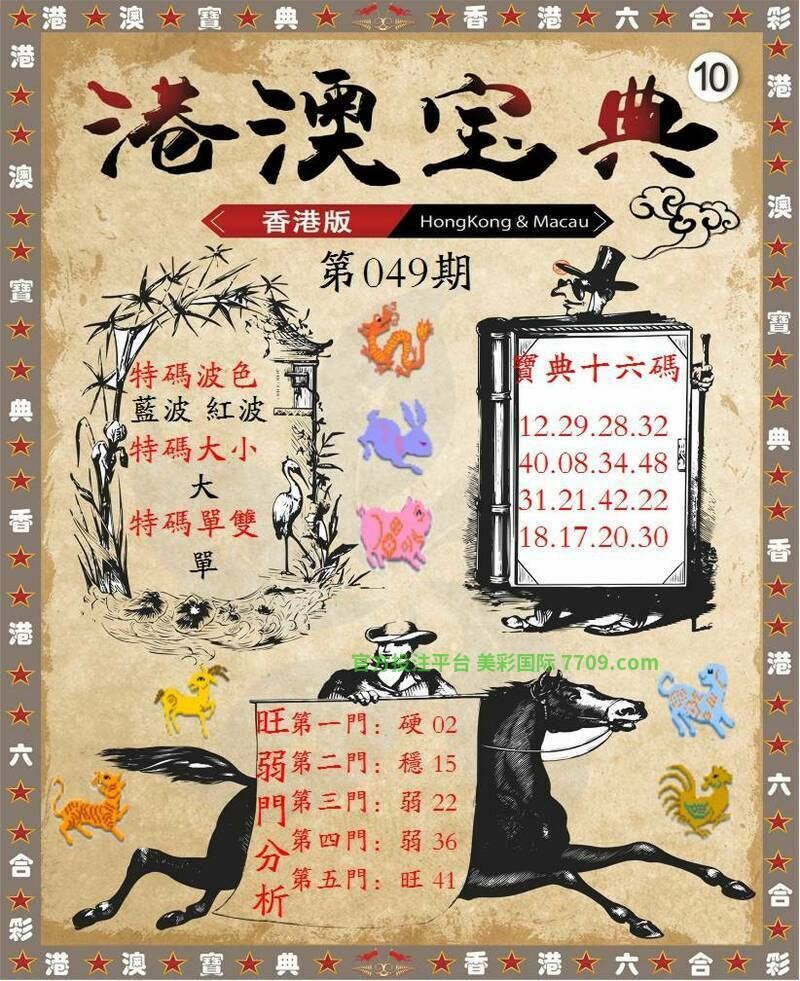 港★澳★寶★典★香★港★六★合★彩
10
港澳宝典
香港版 HongKong & Macau
第049期
特碼波色
藍波 紅波
特碼大小
大
特碼單雙
單
寶典十六碼
12.29.28.32
40.08.34.48
31.21.42.22
18.17.20.30
官方投注平台 美彩国际 7709.com
旺弱門分析
第一門：硬 02
第二門：穩 15
第三門：弱 22
第四門：弱 36
第五門：旺 41
港★澳★寶★典★香★港★六★合★彩
港★澳★寶★典★香★港★六★合★彩
港★澳★寶★典★香★港★六★合★彩